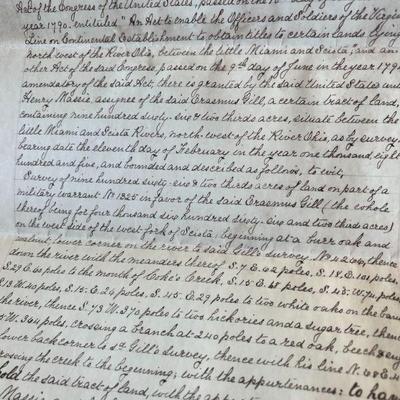 Act of the Congress of the United States, passed on the 10th day
year 1790. entitled "An Act to enable the Officers and Soldiers of the Virgin
Line on Continental Establishment to obtain titles to certain lands lying
north west of the River Ohio, between the little Miami and Sciota; and an
other Act of the said Congress, passed on the 9th day of June in the year 179
amendatory of the said Act, there is granted by the said United States unto
Henry Massie, assignee of the said Erasmus Gill, a certain tract of land,
containing nine hundred sixty-six & two thirds acres, situate between the
little Miami and Sciota Rivers, north west of the River Ohio, as by survey
bearing date the eleventh day of February in the year one thousand eight
hundred and five, and bounded and described as follows, to wit,
Survey of nine hundred sixty-six & two thirds acres of land on part of a
military warrant No. 1825 in favor of the said Erasmus Gill (the whole
thereof being for four thousand six hundred sixty-six and two thirds acres)
on the west side of the west fork of Sciota, beginning at a burr oak and
walnut, lower corner on the river to said Gill's survey, No. thence
down the river with the meanders thereof S. 7 E. 42 poles, S. 18 E. 101 poles,
S. 29 E. 46 poles to the mouth of Coke's Creek, S. 15 E. 68 poles, S. 40 W. 74 poles,
S. 13 W. 40 poles, S. 15 E. 26 poles, S. 45 E. 29 poles to two white oaks on the bank
the river, thence S. 73 W. 370 poles to two hickories and a sugar tree, then
W. 364 poles, crossing a branch at 240 poles to a red oak, beech &
lower back corner to sd. Gill's survey, thence with his line N. 68 E.
crossing the creek to the beginning; with the appurtenances: to have
hold the said tract of land, with the
Massie